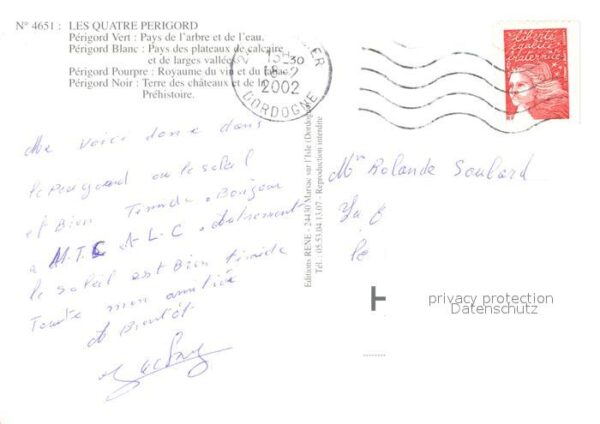 N° 4651 : LES QUATRE PERIGORD
Périgord Vert : Pays de l'arbre et de l'eau.
Périgord Blanc : Pays des plateaux de calcaire
et de larges vallées
Périgord Pourpre : Royaume du vin et du tabac
Périgord Noir : Terre des châteaux et de la
Préhistoire.
15H30
18-2
2002
DORDOGNE
liberté
égalité
fraternité
Me voici donc dans
le Perigord ou le soleil
est Bien Timide. Bonjour
a M.T.C A-L-C.
le soleil est Bien timide
Toute mon amitié
et Bientôt
Editions RENE - 24430 Marsac sur l'Isle (Dordogne)
Tél. : 05.53.04.13.07 - Reproduction interdite
Mr Rolande Soulard
privacy protection
Datenschutz